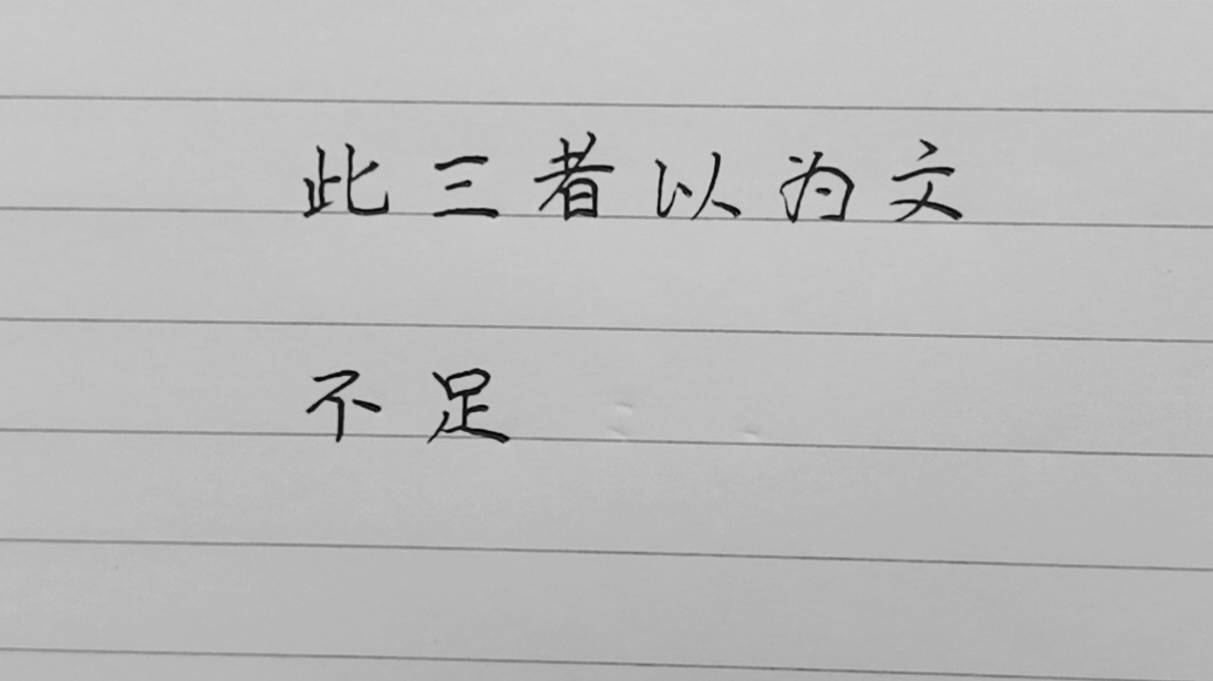 此三者以为文
不足